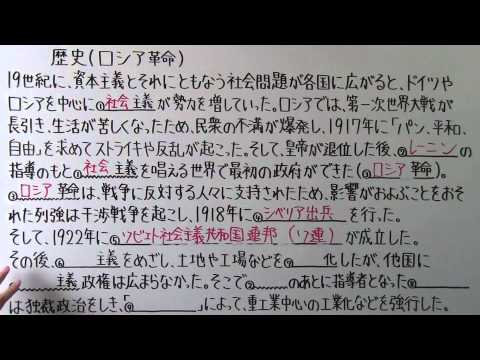 歴史(ロシア革命)
19世紀に、資本主義とそれにともなう社会問題が各国に広がると、ドイツや
ロシアを中心に社会主義が勢力を増していった。ロシアでは、第一次世界大戦が
長引き、生活が苦しくなったため、民衆の不満が爆発し、1917年に「パン、平和、
自由」を求めてストライキや反乱が起こった。そして、皇帝が退位した後、レーニンの
指導のもと社会主義を唱える世界で最初の政府ができた(ロシア革命)。
ロシア革命は、戦争に反対する人々に支持されたため、影響がおよぶことをおそ
れた列強は干渉戦争を起こし、1918年にシベリア出兵を行った。
そして、1922年にソビエト社会主義共和国連邦(ソ連)が成立した。
その後、主義をめざし、土地や工場などを化したが、他国に
主義政権は広まらなかった。そこでのあとに指導者となった
は独裁政治をしき、「」によって、重工業中心の工業化などを強行した。